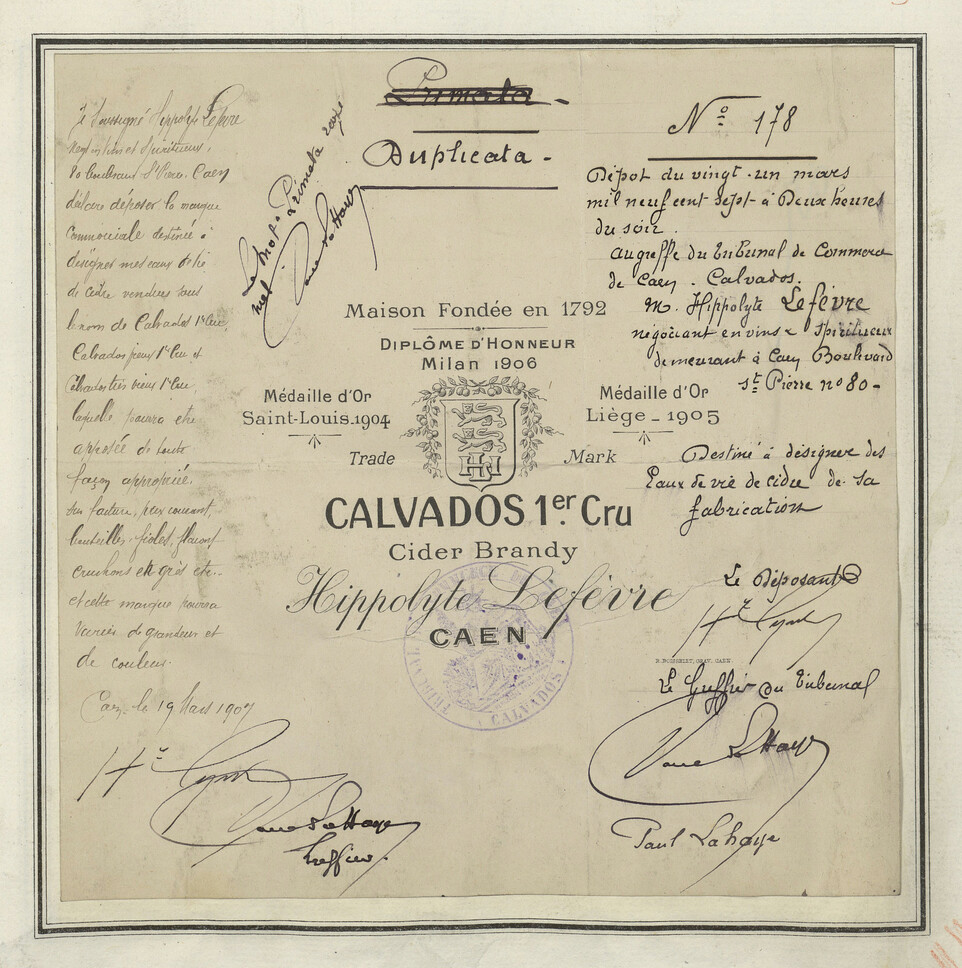 Primata -
Duplicata -
Le mot Primata rayé
nul
Paul Lahaye
Je soussigné Hippolyte Lefèvre
négt en vins et Spiritueux,
80 boulevard St Pierre, Caen
déclare déposer la marque
commerciale destinée à
désigner mes eaux de vie
de cidre vendues sous
le nom de Calvados 1er Cru,
Calvados vieux 1er Cru et
Calvados très vieux 1er Cru,
laquelle pourra être
apposée de toute
façon appropriée,
sur facture, prix courant,
bouteilles, fioles, flacons
cruchons en grès etc.
et cette marque pourra
varier de grandeur et
de couleur.
Caen, le 19 Mars 1907
Hte
Paul Lahaye
Greffier.
Maison Fondée en 1792
DIPLÔME D'HONNEUR
Milan 1906
Médaille d'Or
Saint-Louis-1904
Médaille d'Or
Liège - 1905
Trade
Mark
CALVADOS 1er. Cru
Cider Brandy
Hippolyte Lefèvre
CAEN
TRIBUNAL DE COMMERCE DE CAEN
CALVADOS
No 178
Dépot du vingt-un mars
mil neuf cent sept à Deux heures
du soir.
au greffe du Tribunal de Commerce
de Caen. Calvados.
M. Hippolyte Lefèvre
négociant en vins & Spiritueux
demeurant à Caen Boulevard
St Pierre no 80-
Destiné à désigner des
Eaux de vie de cidre de sa
fabrication
Le Déposant
Hte
R. BOISSELET, GRAV. CAEN.
Le Greffier du Tribunal
Paul Lahaye
Paul Lahaye